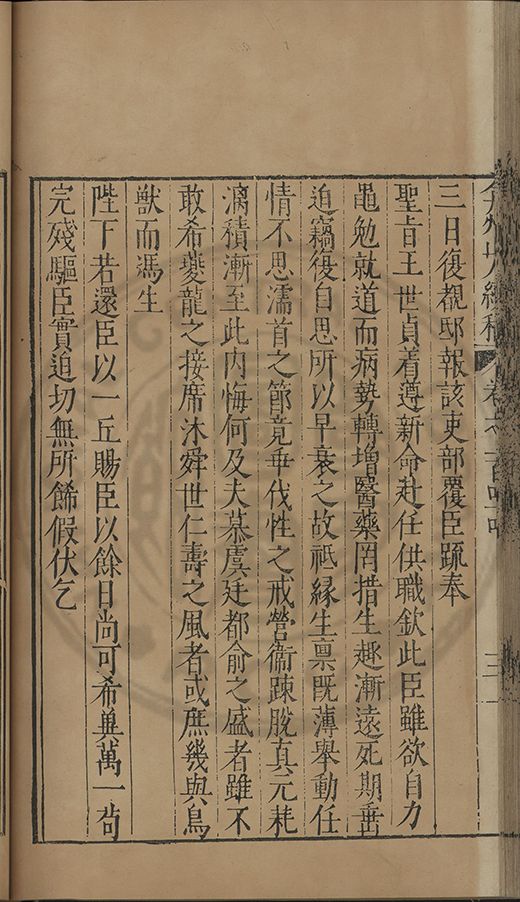 三日復覩邸報該吏部覆臣疏奉
聖旨王世貞着遵新命赴任供職欽此臣雖欲自力
黽勉就道而病勢轉增醫藥罔措生趣漸遠死期垂
迫竊復自思所以早衰之故祗緣生稟既薄舉動任
情不思濡首之節竟乖伐性之戒營衞踈脫真元耗
漓積漸至此内悔何及夫慕虞廷都俞之盛者雖不
敢希夔龍之接席沐舜世仁壽之風者或庶幾與鳥
獸而馮生
陛下若還臣以一丘賜臣以餘日尚可希兾萬一苟
完殘軀臣實迫切無所飾假伏乞